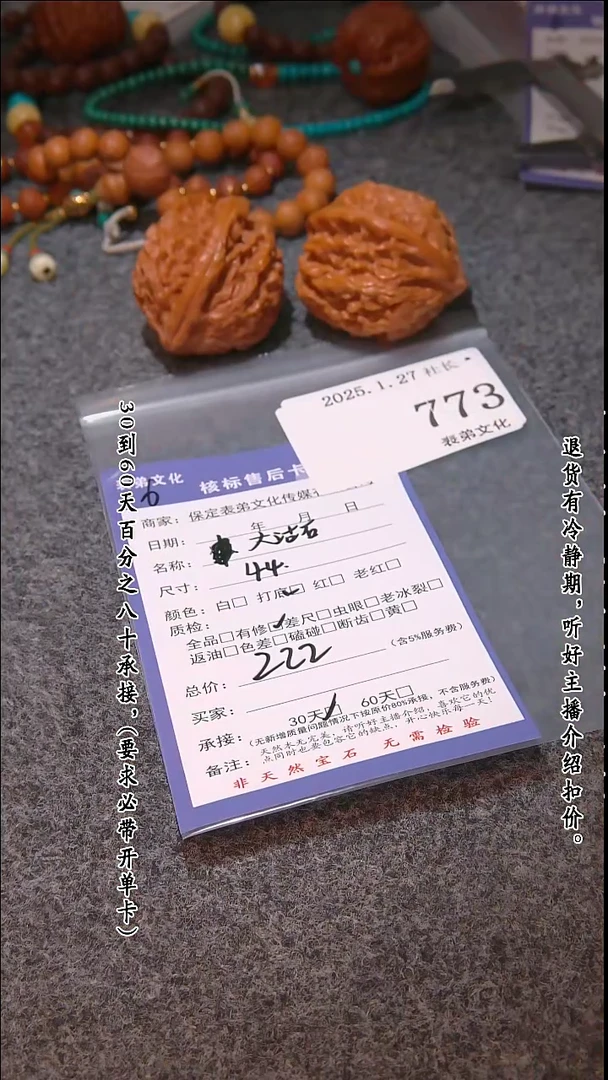 2025.1.27 社长
773
表弟文化
表弟文化
核标售后卡
商家：保定表弟文化传媒
日期： 年 月 日
名称： 大沽石
尺寸： 44.
颜色：白□ 打底□ 红□ 老红□
质检：
全品□有修□差尺□虫眼□老冰裂□
返油□色差□磕碰□断齿□黄□
总价： 222 (含5%服务费)
买家：
承接： 30天□ 60天□
(无新增质量问题情况下按原价80%承接，不含服务费)
备注：天然木无完美，请听好主播介绍，喜欢它的优
点同时也要包容它的缺点，开心快乐每一天！
非天然宝石 无需检验
30到60天百分之八十承接，(要求必带开单卡)
退货有冷静期，听好主播介绍扣价。